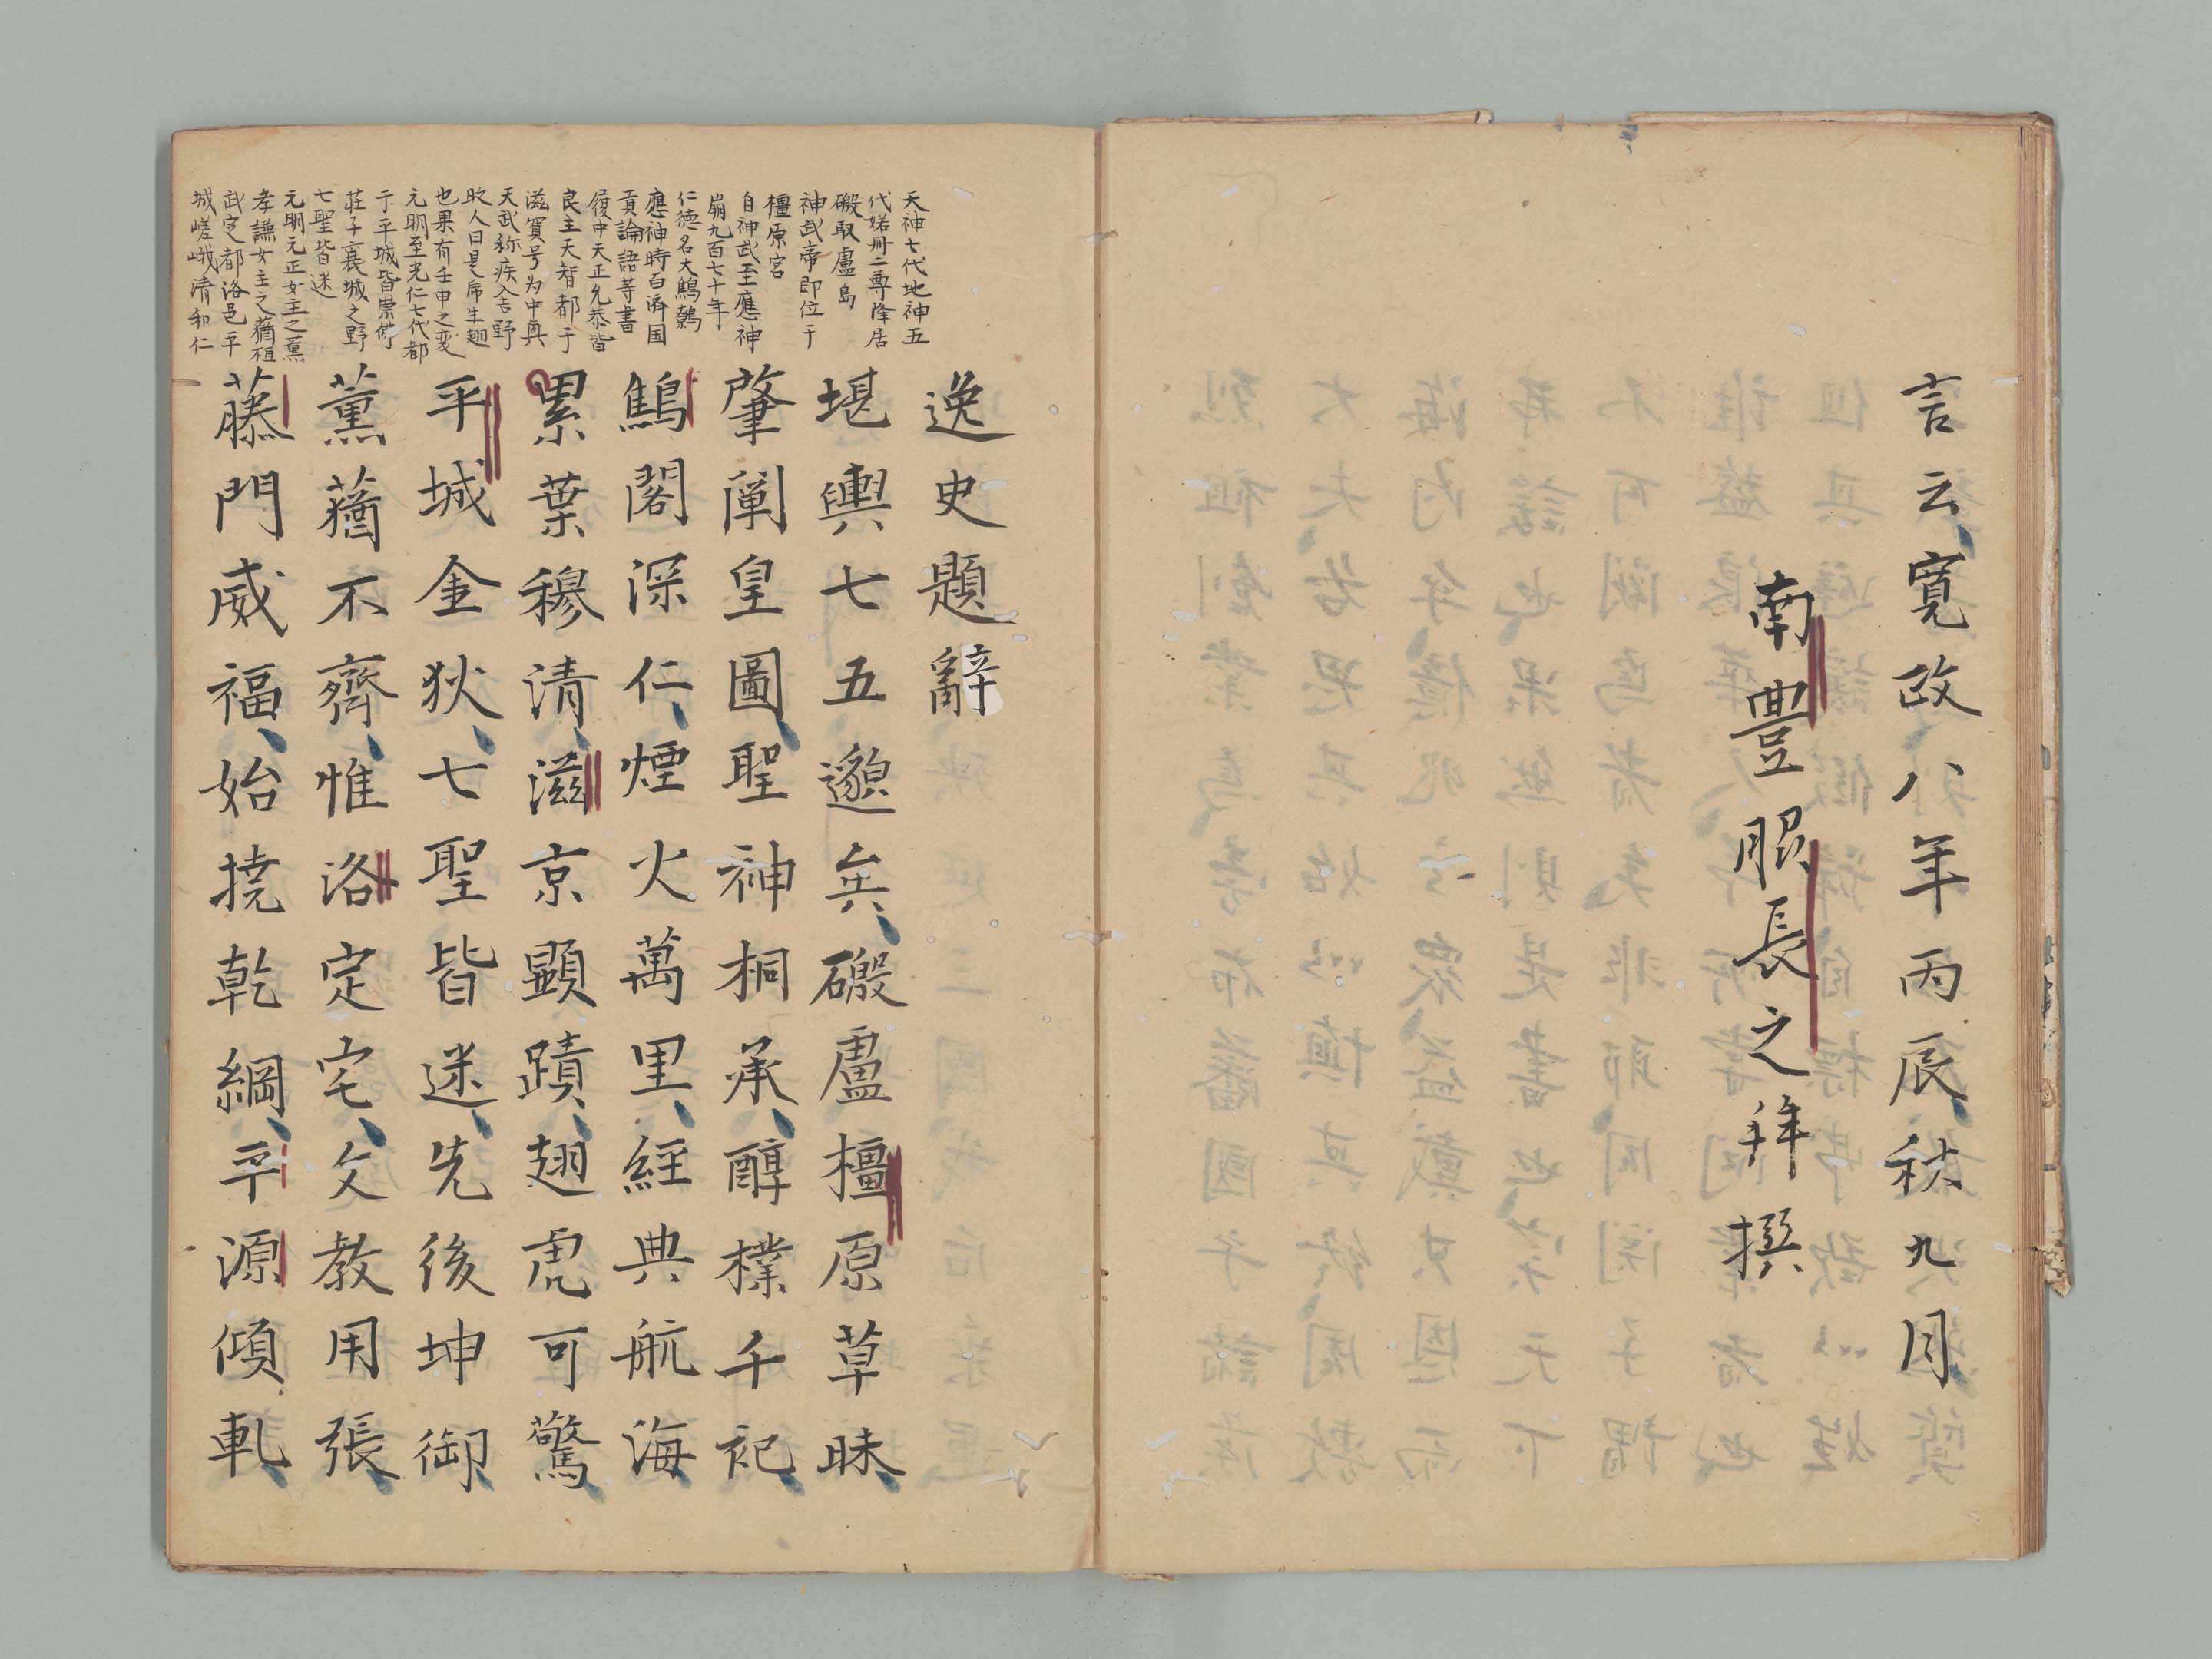 言云寛政八年丙辰秋九月
南豊脵長之拜撰
逸史題辭
堪輿七五邈矣磤盧橿原草昧
肇闡皇圖聖神桐承醇樸千祀
鷦閣深仁煙火萬里經典航海
累葉穆清滋京顯蹟翅虎可驚
平城金狄七聖皆迷先後坤御
薫蕕不齊惟洛定宅文教用張
藤門威福始撓乾綱平源傾軋
天神七代地神五
代諾冊二尊降居
磤馭盧島
神武帝即位于
橿原宮
自神武至應神
崩九百七十年
仁德名大鷦鷯
應神時百済国
貢論語等書
履中天正允恭皆
良主天智都于
滋賀号为中興
天武称疾入吉野
時人曰是虎生翅
也果有壬申之変
元明至光仁七代都
于平城皆崇佛
莊子襄城之野
七聖皆迷
元明元正女主之薫
孝謙女主之蕕桓
武定都洛邑平
城嵯峨清和仁